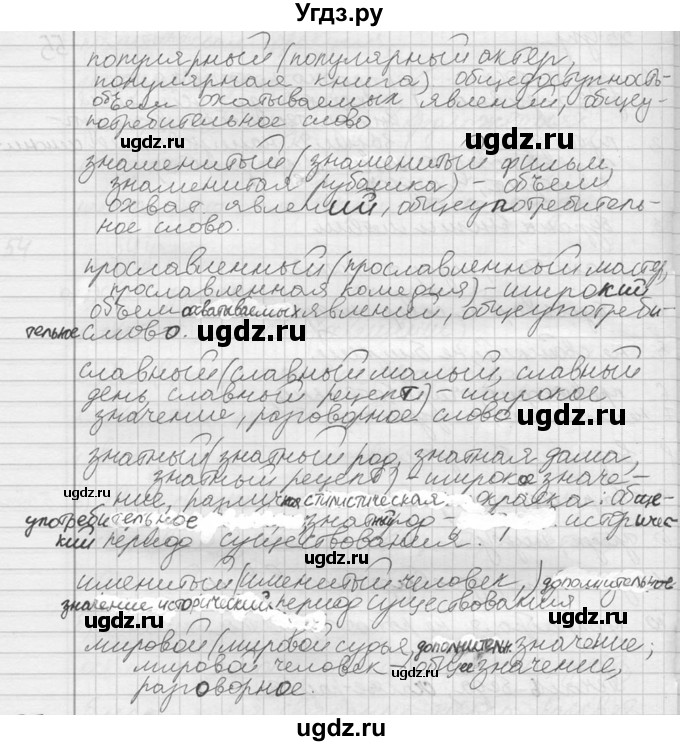 Угдз.ру
популярный (популярный актер,
популярная книга) общедоступность-
объем охатываемых явлений, общеу-
потребительное слово
ugdz.ru ugdz.ru
знаменитый (знаменитый фильм,
знаменитая рубашка) - объем,
охват явлений, общеупотребитель-
ное слово.
ugdz.ru ugdz.ru
прославленный (прославленный мастер,
прославленная комедия) - широкий
объем охватываемых явлений, общеупотреби-
тельное слово.
ugdz.ru
славный (славный малый, славный
день, славный рецепт) - широкое
значение, разговорное слово
ugdz.ru
знатный (знатный род, знатная дама,
знатный рецепт) - широкое значе-
ugdz.ru ugdz.ru
ние, различная стилистическая окраска: обще-
употребительное знатный род - историчес-
кий период существования.
именитый (именитый человек,) дополнительное
значение исторический период существования
ugdz.ru ugdz.ru
мировой (мировой судья, дополнительн. значение;
мировой человек - общее значение,
разговорное.
ugdz.ru ugdz.ru
ugdz.ru